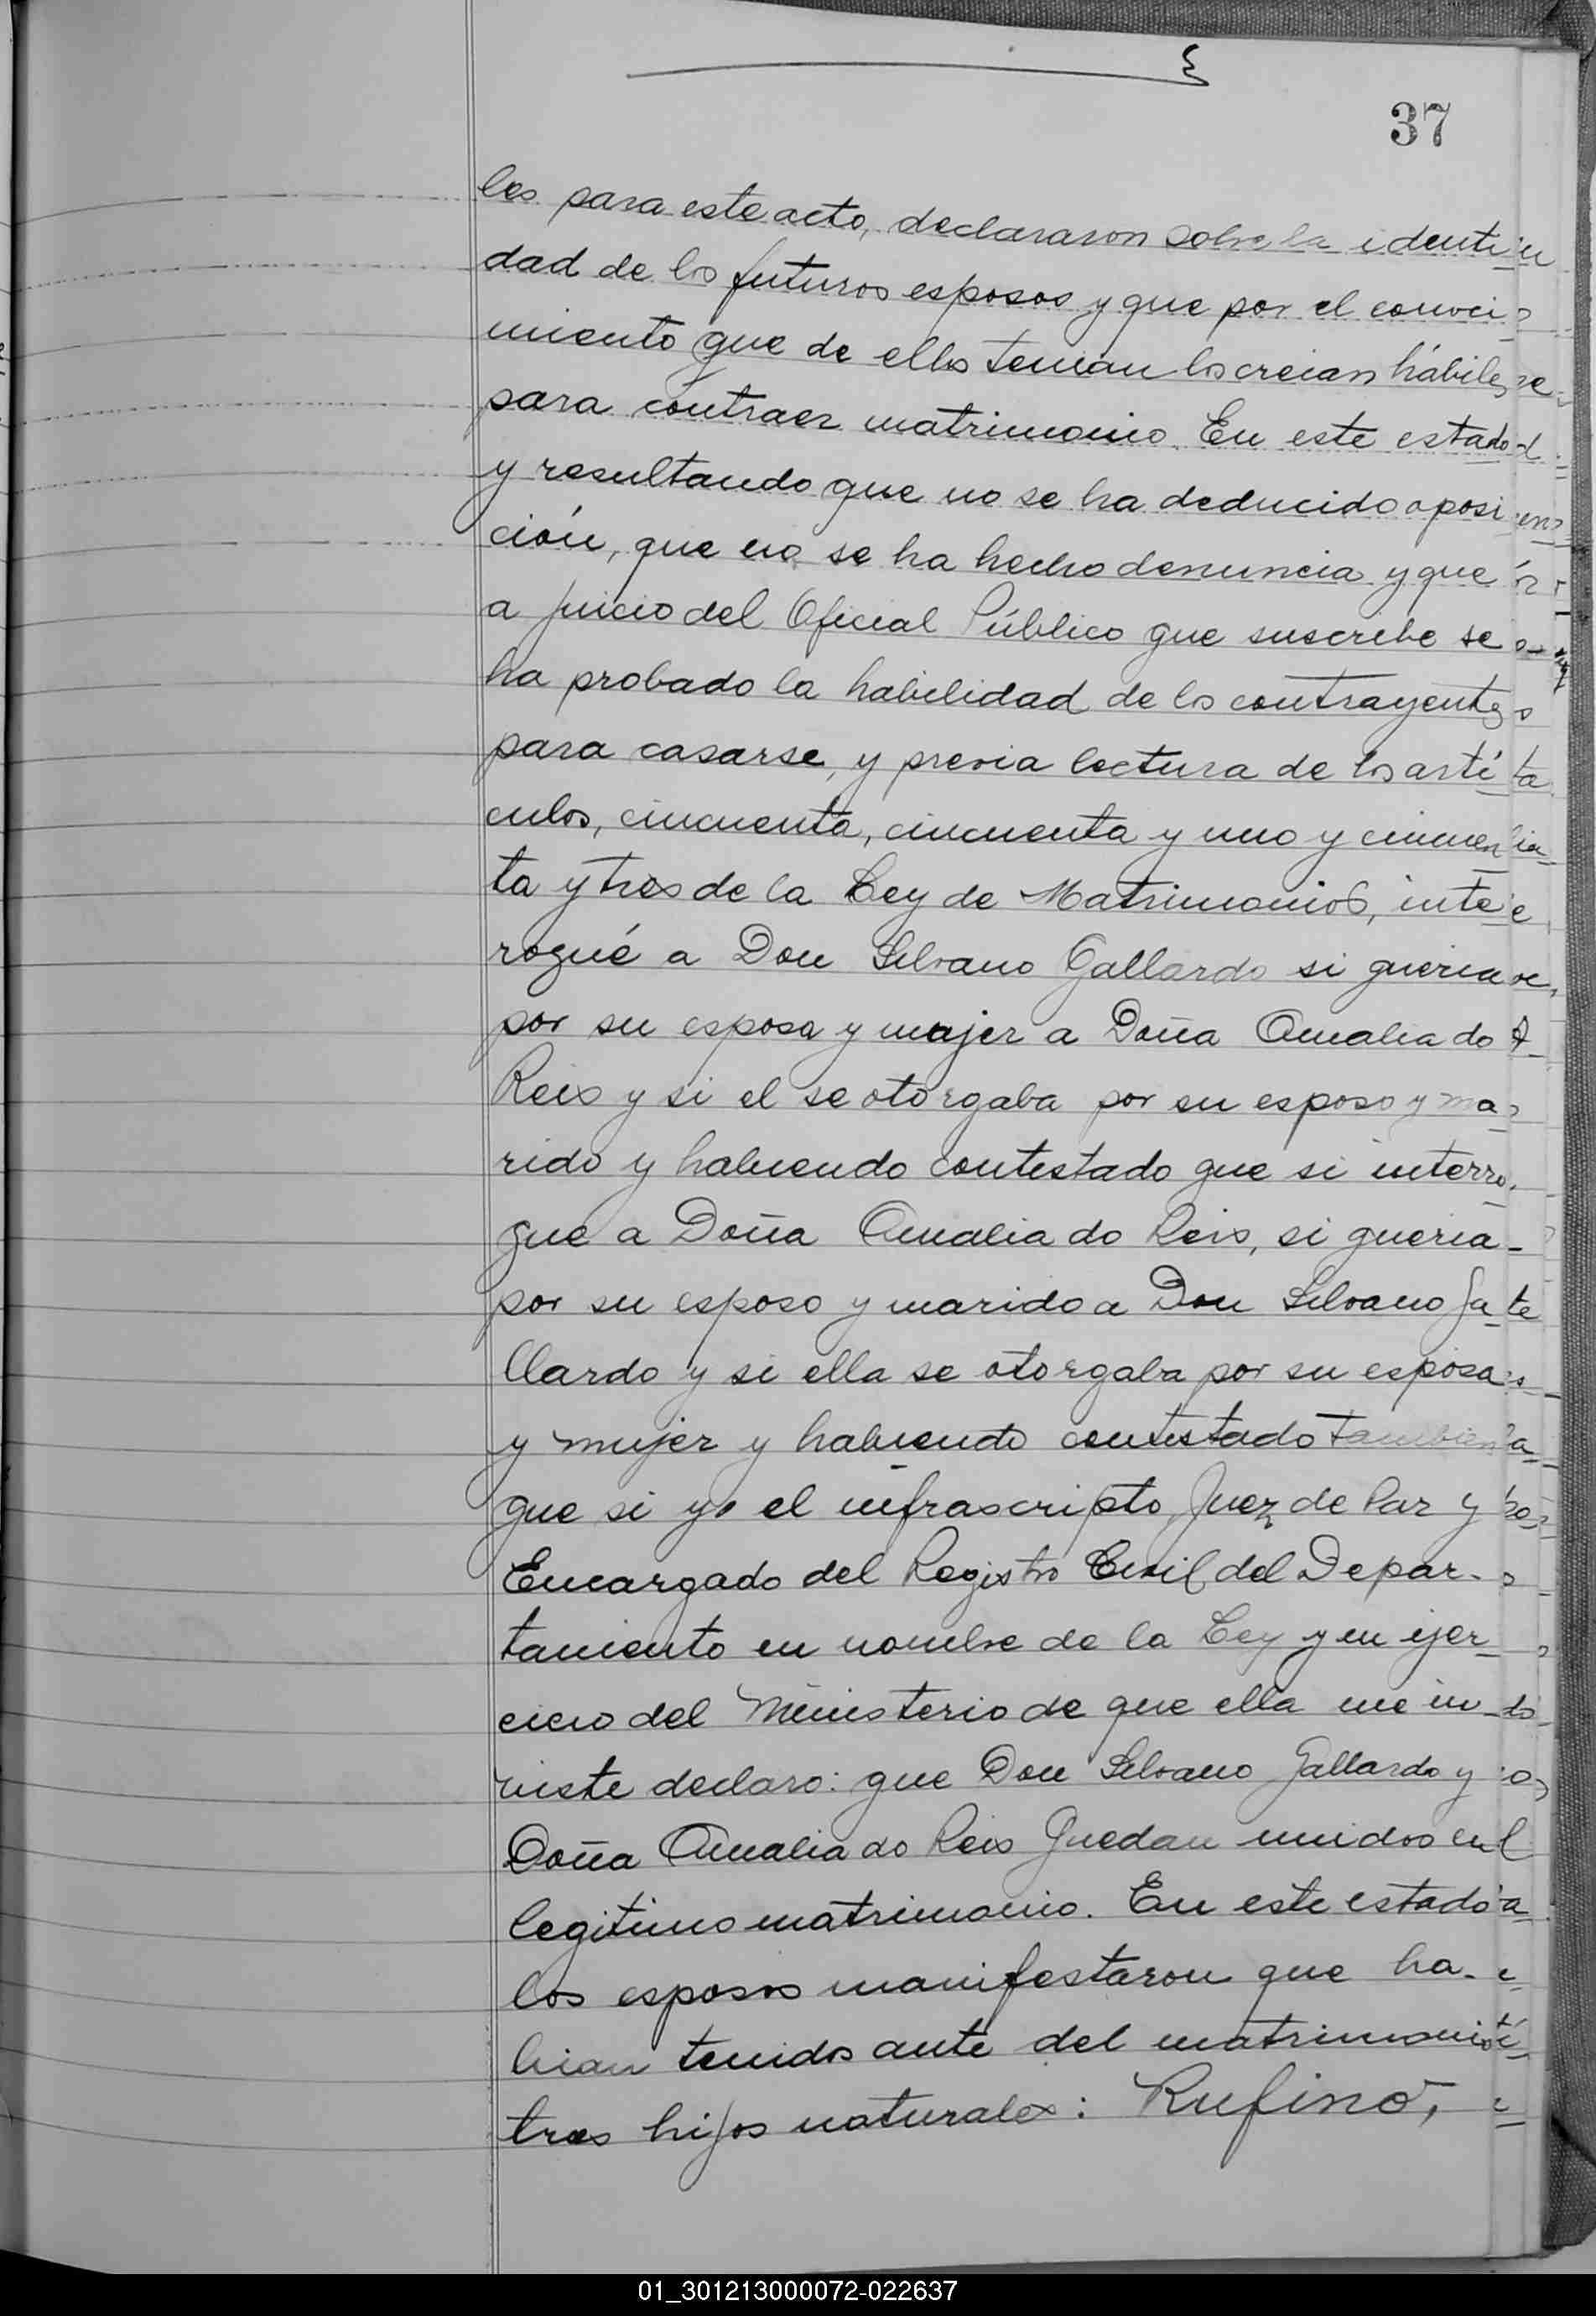 37
les para este acto, declararon sobre la identi
dad de los futuros esposos y que por el conoci
miento que de ellos tenian los creian hábiles
para contraer matrimonio. En este estado
y resultando que no se ha deducido oposi
ción, que no se ha hecho denuncia y que
a juicio del Oficial Público que suscribe se
ha probado la habilidad de los contrayentes
para casarse, y previa lectura de los artí
culos, cincuenta, cincuenta y uno y cincuen
ta y tres de la Ley de Matrimonios, inte
rogué a Don Silvano Gallardo si queria
por su esposa y mujer a Doña Amalia do
Reis y si el se otorgaba por su esposo y ma
rido y habiendo contestado que si interro
gue a Doña Amalia do Reis, si queria
por su esposo y marido a Don Silvano Ga
llardo y si ella se otorgaba por su esposa
y mujer y habiendo contestado tambien
que si yo el infrascripto, Juez de Paz y
Encargado del Registro Civil del Depar-
tamiento en nombre de la Ley y en ejer
cicio del Ministerio de que ella me in
viste declaro: que Don Silvano Gallardo y
Doña Amalia do Reis Quedan unidos en
legitimo matrimonio. En este estado
los esposos manifestaron que ha-
bian tenidos ante del matrimonio
tres hijos naturales: Rufino,
01_301213000072-022637